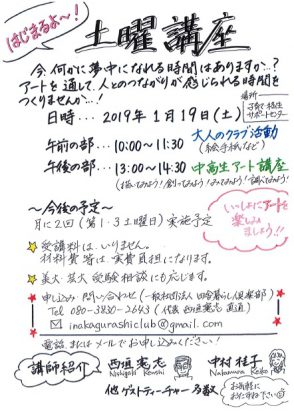 はじまるよ〜!
土曜講座
今、何かに夢中になれる時間はありますか…?
アートを通して、人とのつながりが感じられる時間を
つくりませんか…!
日時… 2019年1月19日(土)
場所
子育て・移住
サポートセンター
午前の部… 10:00〜11:30 大人のクラブ活動
(絵手紙など)
午後の部… 13:00〜14:30 中高生アート講座
(描いてみよう!創ってみよう!みてみよう!調べてみよう!)
〜今後の予定〜
月に2回(第1・3土曜日)実施予定
いっしょにアートを
楽しみ
ましょう!!
受講料は、いりません。
材料費等は、実費負担になります。
美大・芸大受験相談にも応じます。
申し込み・問い合わせ(一般社団法人田舎暮らし倶楽部)
Tel 080-3830-2643(代表 西垣憲志 直通)
inakagurashiclub@gmail.com
電話、またはメールでお申し込みください!
講師紹介
西垣憲志
Nishigaki Kenshi
中村桂子
Nakamura Keiko
他ゲストティーチャー多数
お気軽に
おたずね下さい